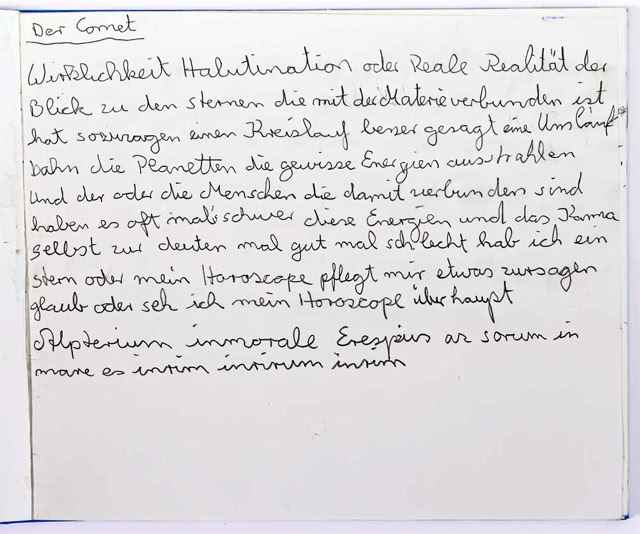 Der Comet
Wirklichkeit Halutination oder Reale Realität der
Blick zu den sternen die mit der Materie verbunden ist
hat sozuzagen einen Kreislauf beser gesagt eine Umlauf
bahn die Planetten die gewisse Energien ausstrahlen
und der oder die Menschen die damit verbunden sind
haben es oft mals schwer diese Energien und das Karma
selbst zur deuten mal gut mal schlecht hab ich ein
stern oder mein Horoscope pflegt mir etwas zursagen
glaub oder seh ich mein Horoscope überhaupt
Alpterium immorale az sorum in
mare es intrim intrirum intrim